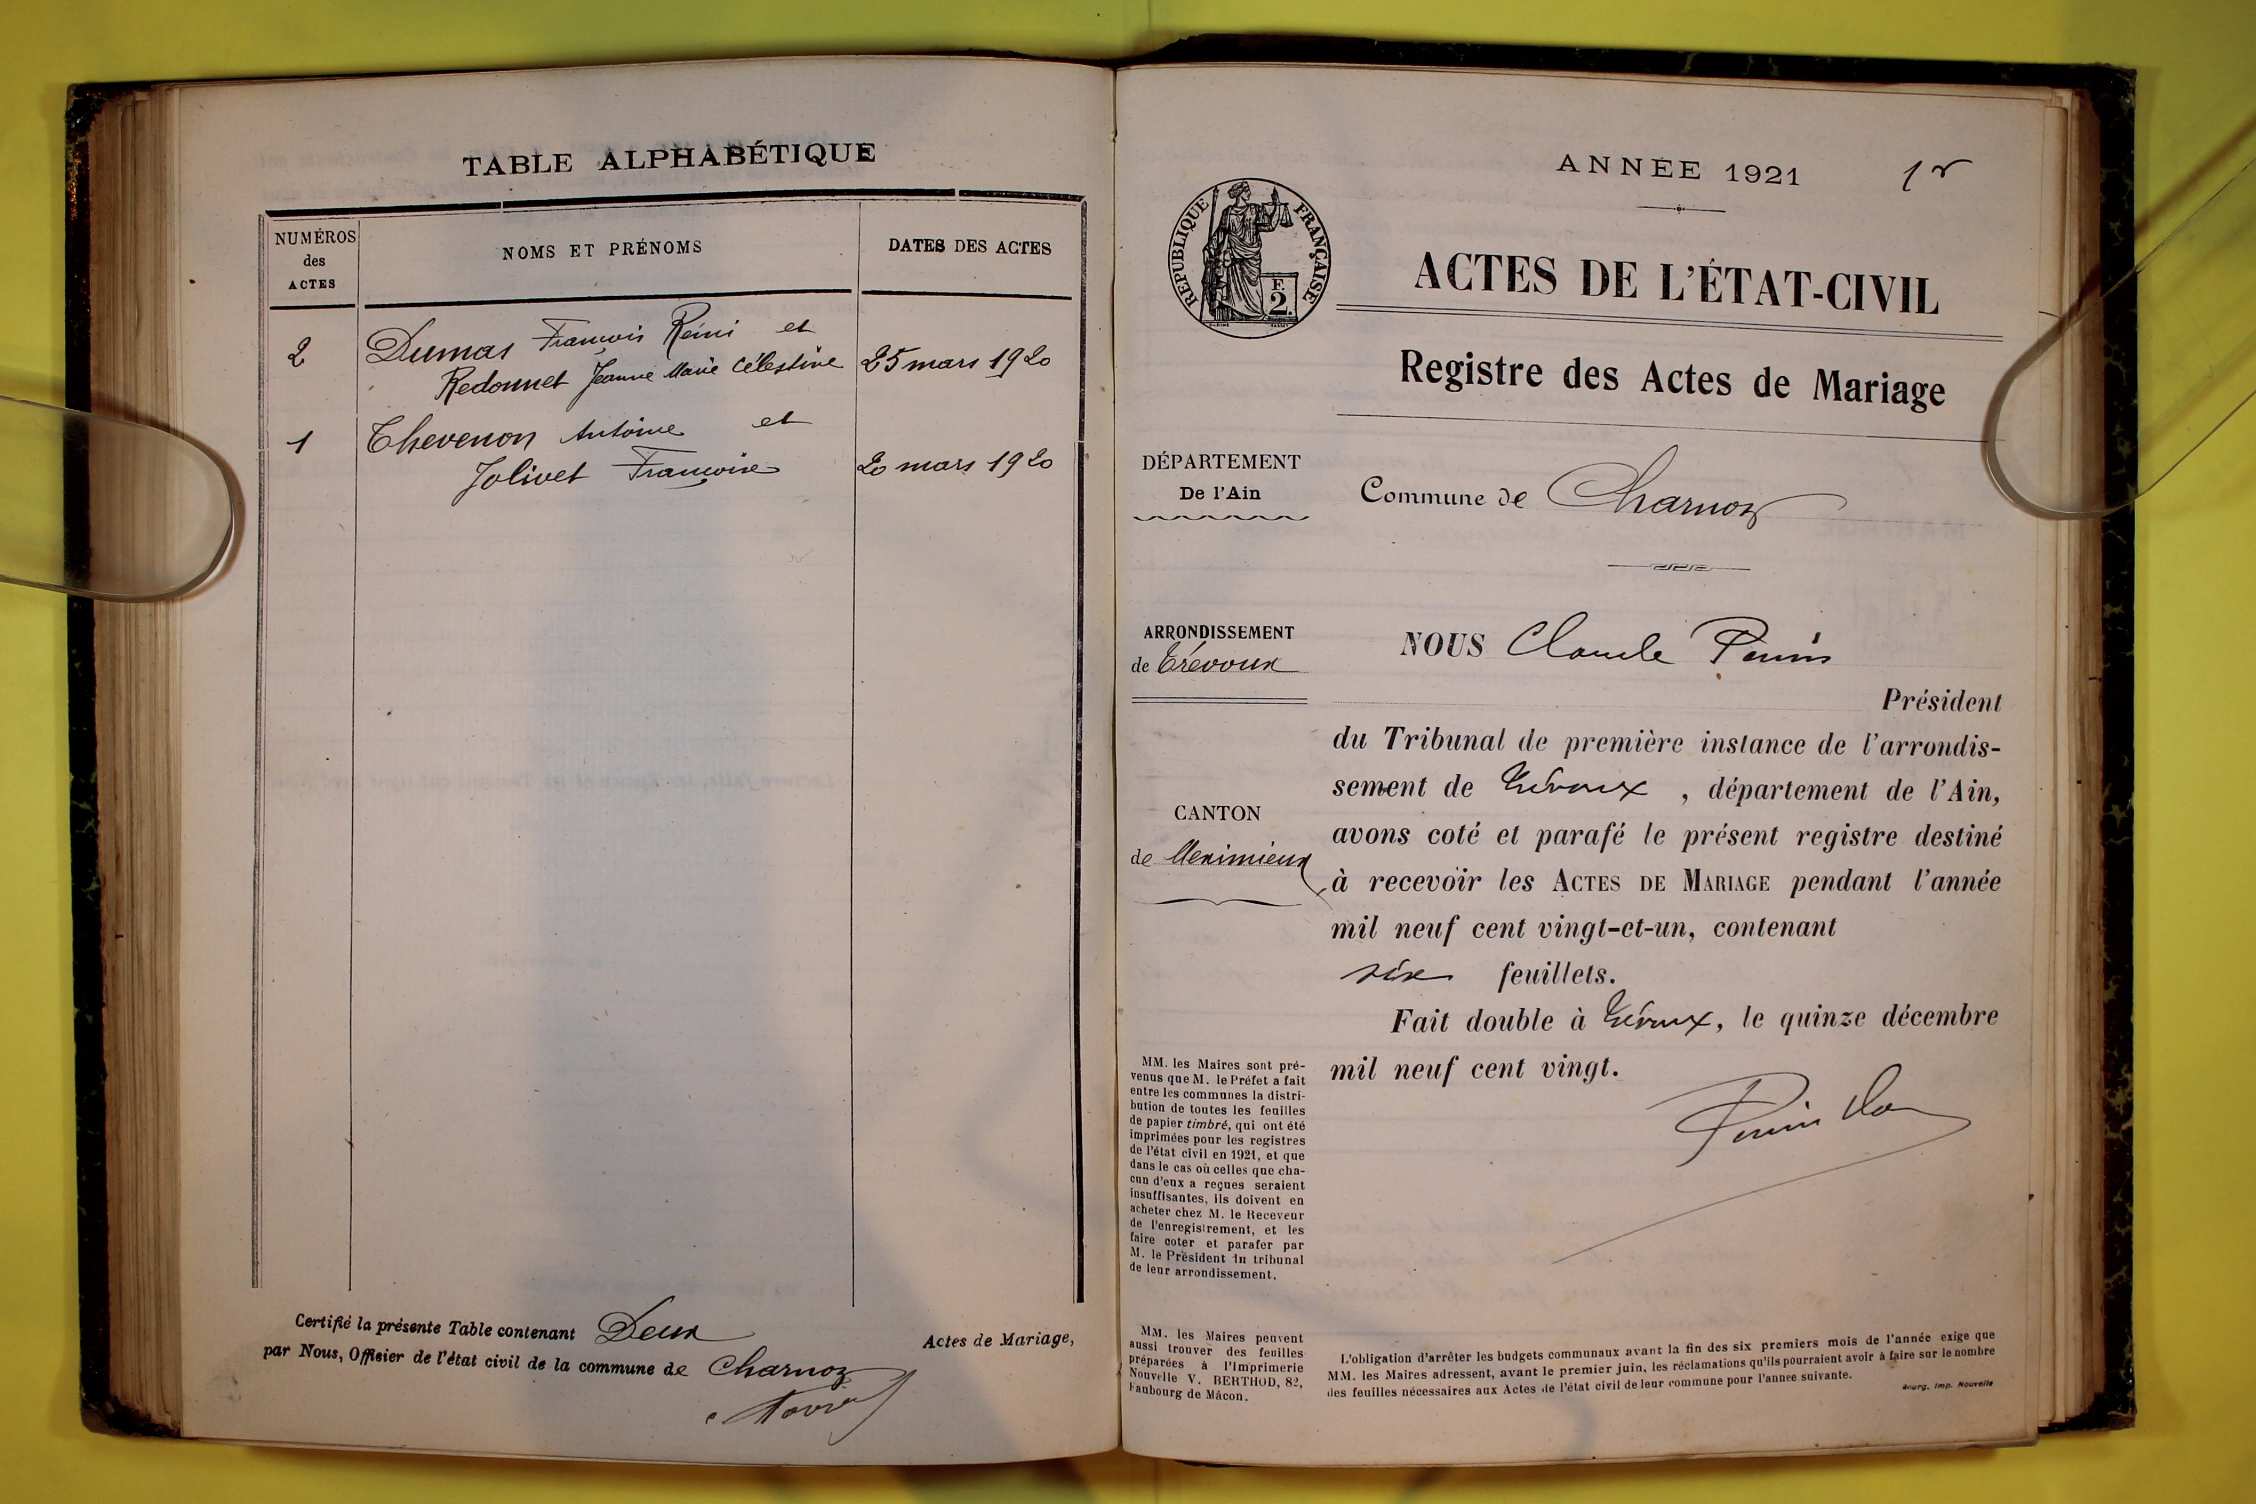 TABLE ALPHABÉTIQUE
NUMÉROS
des
ACTES
NOMS ET PRÉNOMS
DATES DES ACTES
2
Dumas François Rémi et
Redonnet Jeanne Marie Célestine
25 mars 1920
1
Thevenon Antoine et
Jolivet Françoise
20 mars 1920
Certifié la présente Table contenant Deux
Actes de Mariage,
par Nous, Officier de l'état civil de la commune de Charnoz
ANNÉE 1921
1r
RÉPUBLIQUE FRANÇAISE
F.
2.
ACTES DE L'ÉTAT-CIVIL
Registre des Actes de Mariage
DÉPARTEMENT
De l'Ain
Commune de Charnoz
ARRONDISSEMENT
de Trévoux
CANTON
de Meximieux
NOUS Claude
Président
du Tribunal de première instance de l'arrondis-
sement de Trévoux , département de l'Ain,
avons coté et parafé le présent registre destiné
à recevoir les ACTES DE MARIAGE pendant l'année
mil neuf cent vingt-et-un, contenant
six feuillets.
Fait double à Trévoux, le quinze décembre
mil neuf cent vingt.
MM. les Maires sont pré-
venus que M. le Préfet a fait
entre les communes la distri-
bution de toutes les feuilles
de papier timbré, qui ont été
imprimées pour les registres
de l'état civil en 1921, et que
dans le cas où celles que cha-
cun d'eux a reçues seraient
insuffisantes, ils doivent en
acheter chez M. le Receveur
de l'enregistrement, et les
faire coter et parafer par
M. le Président du tribunal
de leur arrondissement.
MM. les Maires peuvent
aussi trouver des feuilles
préparées à l'Imprimerie
Nouvelle V. BERTHOD, 82,
Faubourg de Mâcon.
L'obligation d'arrêter les budgets communaux avant la fin des six premiers mois de l'année exige que
MM. les Maires adressent, avant le premier juin, les réclamations qu'ils pourraient avoir à faire sur le nombre
des feuilles nécessaires aux Actes de l'état civil de leur commune pour l'année suivante.
Bourg. Imp. Nouvelle